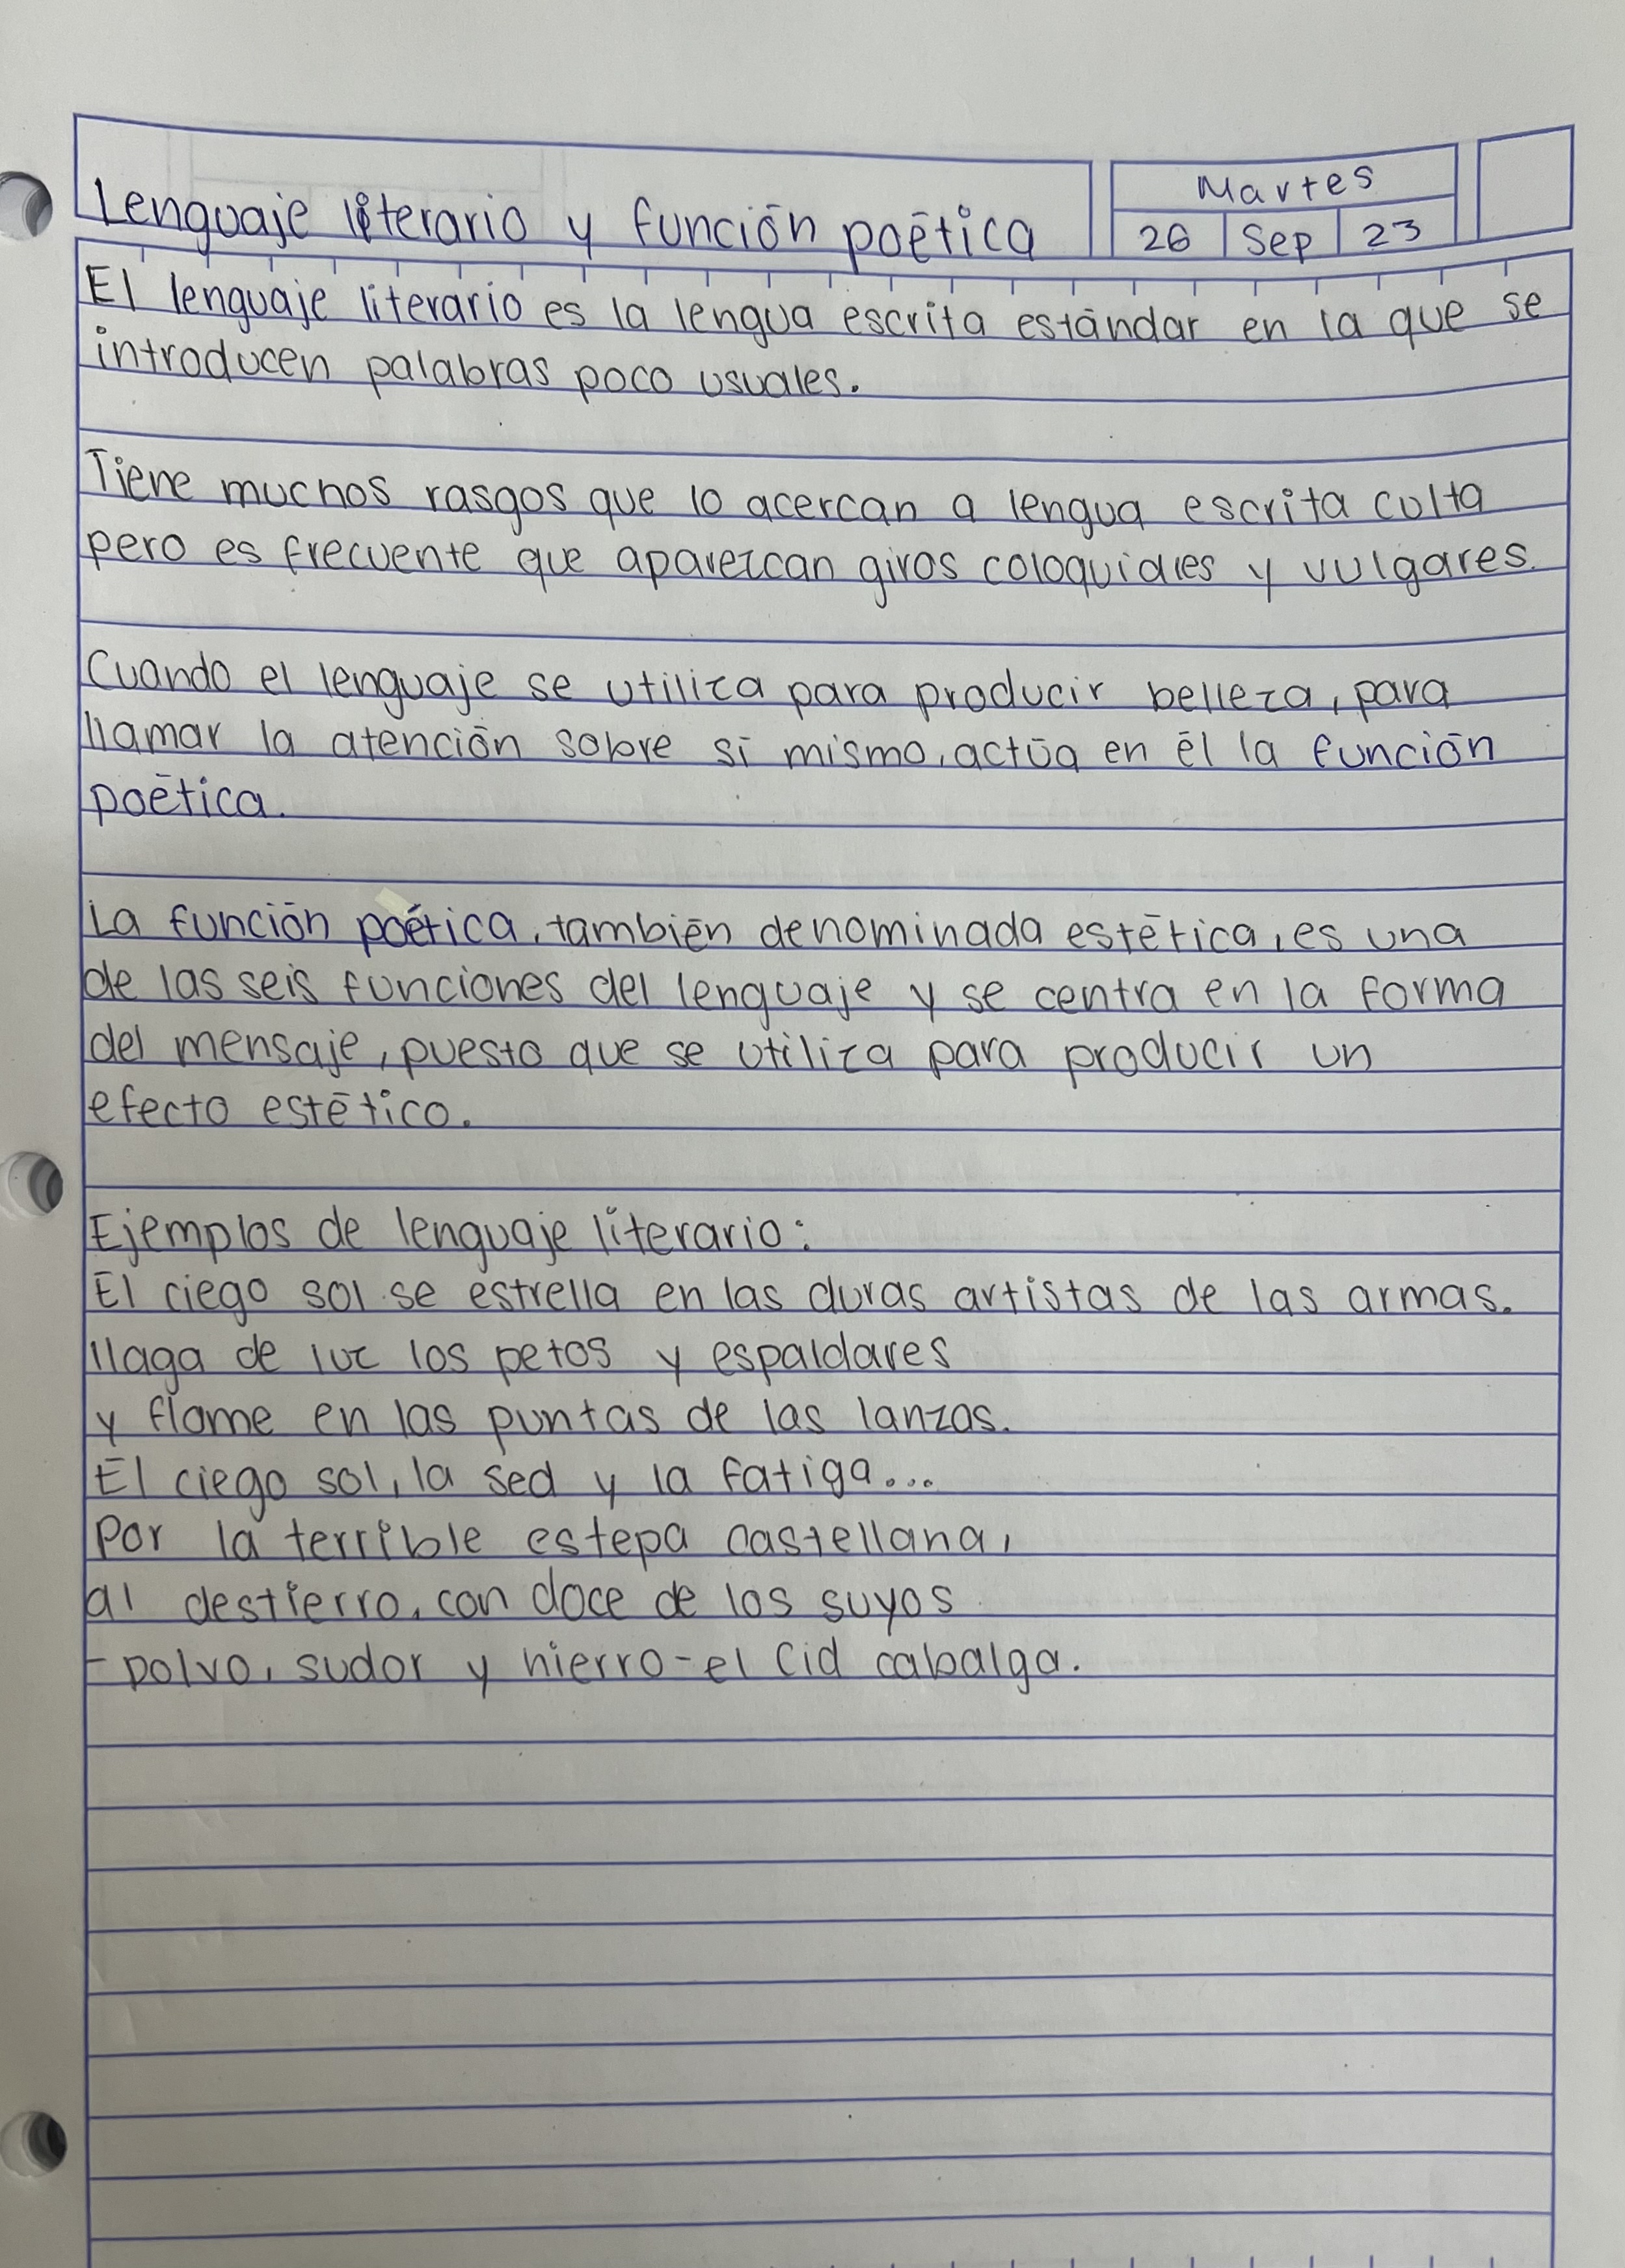 Lenguaje literario y función poética
Martes
26 Sep 23
El lenguaje literario es la lengua escrita estándar en la que se
introducen palabras poco usuales.
Tiene muchos rasgos que lo acercan a lengua escrita culta
pero es frecuente que aparezcan giros coloquiales y vulgares.
Cuando el lenguaje se utiliza para producir belleza, para
llamar la atención sobre sí mismo, actúa en él la función
poética.
La función poética, también denominada estética, es una
de las seis funciones del lenguaje y se centra en la forma
del mensaje, puesto que se utiliza para producir un
efecto estético.
Ejemplos de lenguaje literario:
El ciego sol se estrella en las duras artistas de las armas.
llaga de luz los petos y espaldares
y flame en las puntas de las lanzas.
El ciego sol, la sed y la fatiga...
Por la terrible estepa castellana,
al destierro, con doce de los suyos
-polvo, sudor y hierro-el Cid cabalga.